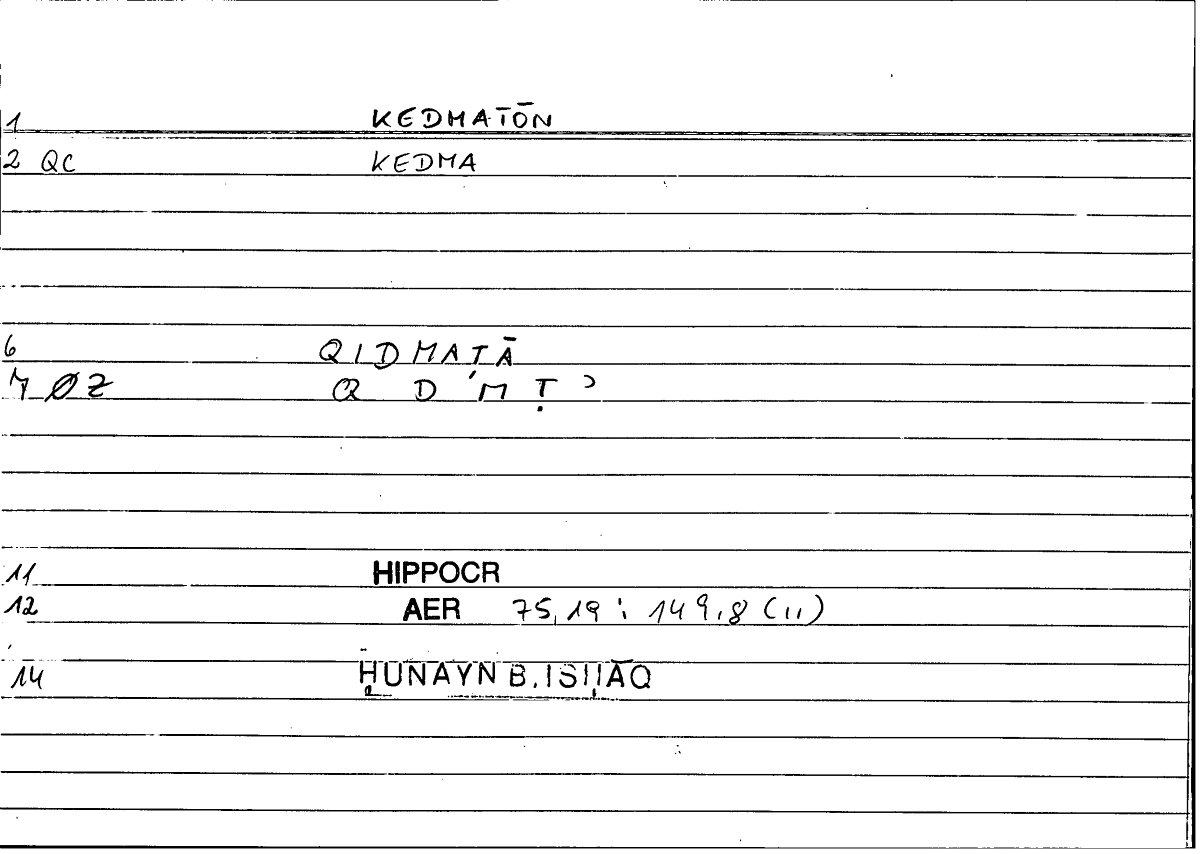 1 KEDMATŌN
2 QC KEDMA
6 QIDMAṬĀ
7 ØZ Q D M Ṭ ʾ
11 HIPPOCR
12 AER 75,19 : 149,8 (11)
14 ḤUNAYN B. ISḤĀQ